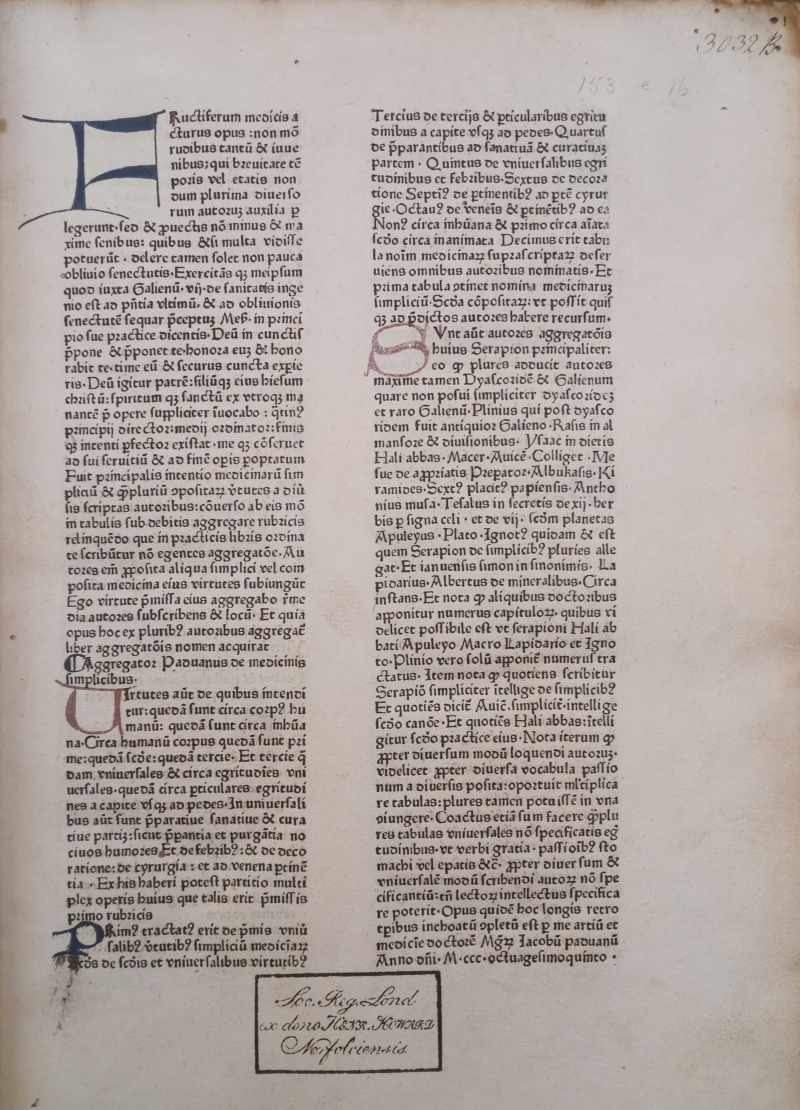 3032 B.
153 e 16
FRuctiferum medicis a
cturus opus :non mō
rudibus tantū & iuue
nibus:qui breuitate tē
poris vel etatis non
dum plurima diuerso
rum autoruȝ auxilia ꝑ
legerunt·sed & ꝓuectis nō minus & ma
xime senibus: quibus &si multa vidisse
potuerūt · delere tamen solet non pauca
obliuio senectutis·Exercitās qȝ meipsum
quod iuxta Galienū·vij·de sanitatis inge
nio est ad p̄ñtia vltimū·& ad obliuionis
senectutē sequar p̄ceptuȝ Mes̄· in princi
pio sue practice dicentis·Deū in cunctis
p̄pone & p̄ponet te·honora euȝ & hono
rabit te·time eū & securus cuncta expie
ris·Deū igitur patrē:filiūqȝ eius hiesum
christū:spiritum qȝ sanctū ex vtroqȝ ma
nantē ꝓ opere suppliciter īuocabo : qtinꝰ
principij director:medij ordinator:finis
qȝ intenti ꝑfector existat·me qȝ cōseruet
ad sui seruitiū & ad finē opis ꝑoptatum
Fuit principalis intentio medicinarū sim
pliciū & ꝙpluriū ɔpositaꝝ v̄tutes a diū
sis scriptas autoribus:cōuerso ab eis mō
in tabulis sub debitis aggregare rubricis
relinquēdo que in practicis libris ordina
te scribūtur nō egentes aggregatōe·Au
tores em̄ ꝓposita aliqua simplici vel com
posita medicina eius virtutes subiungūt
Ego virtute p̄missa eius aggregabo r̄me
dia autores subscribens & locū· Et quia
opus hoc ex pluribꝰ autoribus aggregat̄
liber aggregatōis nomen acquirat
¶Aggregator Paduanus de medicinis
simplicibus·
VIrtutes aūt de quibus intendi
tur:quedā sunt circa corpꝰ hu
manū: quedā sunt circa inhūa
na·Circa humanū corpus quedā sunt pri
me:quedā scd̄e:quedā tercie·Et tercie q̄
dam vniuersales & circa egritudīes vni
uersales·quedā circa ꝑticulares egritudi
nes a capite vsqȝ ad pedes·In uniuersali
bus aūt sunt p̄paratiue sanatiue & cura
tiue partiȝ:sicut p̄parantia et purgātia no
ciuos humores·Et de febribꝰ:& de deco
ratione:de cyrurgia : et ad venena ꝑtinē
tia · Ex his haberi potest partitio multi
plex operis huius que talis erit p̄missis
primo rubricis
PRimꝰ tractatꝰ erit de p̄mis vniū
salibꝰ v̄tutibꝰ simpliciū mediciaꝝ
Scd̄s de scd̄is et vniuersalibus virtutibꝰ
Tercius de tercijs & ꝑticularibus egritu
dinibus a capite vsqȝ ad pedes·Quartus
de p̄parantibus ad sanatiuā & curatiuaȝ
partem · Quintus de vniuersalibus egri
tudinibus et febribus·Sextus de decora
tione Septiꝰ de ꝑtinentibꝰ ad ꝑtē cyrur
gie·Octauꝰ de veneīs & ꝑtinētibꝰ ad ea
Nonꝰ circa inhūana & primo circa aīata
scd̄o circa inanimata Decimus erit tabu
la noīm medicinaꝝ supra scriptaꝝ deser
uiens omnibus autoribus nominatis· Et
prima tabula ɔtinet nomina medicinaruȝ
simpliciū·Scd̄a cōpositaꝝ:vt possit quis
qȝ ad p̄dictos autores habere recursum·
SVnt aūt autores aggregatōis
huius Serapion principaliter:
eo ꝙ plures adducit autores
maxime tamen Dyascoridē & Galienum
quare non posui simpliciter dyascorideȝ
et raro Galienū·Plinius qui post dyasco
ridem fuit antiquior Galieno·Rasis in al
mansore & diuisionibus· Ysaac in dietis
Hali abbas·Macer·Auicē·Colliget ·Me
sue de apꝓriatis Preparator·Albukasis·Ki
ramides·Sextꝰ placitꝰ papiensis·Antho
nius musa·Tesalus in secretis de xij·her
bis ꝑ signa celi · et de vij· scd̄m planetas
Apuleyus·Plato·Ignotꝰ quidam & est
quem Serapion de simplicibꝰ pluries alle
gat·Et ianuensis simon in sinonimis· La
pidarius·Albertus de mineralibus·Circa
instans·Et nota ꝙ aliquibus doctoribus
apponitur numerus capituloꝝ· quibus vi
delicet possibile est vt serapioni Hali ab
bati Apuleyo Macro Lapidario et Igno
to·Plinio vero solū apponit̄ numerus tra
ctatus· Item nota ꝙ quotiens scribitur
Serapiō simpliciter ītellige de simplicibꝰ
Et quotiēs dicit̄ Auicē·simplicit̄·intellige
scd̄o canōe·Et quotiēs Hali abbas:ītelli
gitur scd̄o practice eius·Nota iterum ꝙ
ꝓpter diuersum modū loquendi autoruȝ·
videlicet ꝓpter diuersa vocabula passio
num a diuersis posita:oportuit mltiplica
re tabulas:plures tamen potuissē in vna
ɔiungere·Coactus etiā sum facere ꝙplu
res tabulas vniuersales nō specificatis eḡ
tudinibus·vt verbi gratia·passioibꝰ sto
machi vel epatis &c̄· ꝓpter diuersum &
vniuersalē modū scribendi autoꝝ nō spe
cificantiū:tn̄ lectoꝝ intellectus specifica
re poterit·Opus quidē hoc longis retro
tꝑibus inchoatū ɔpletū est ꝑ me artiū et
medicīe doctorē Mgrꝝ Iacobū paduanū
Anno dn̄i·M·ccc·octuagesimoquinto ·
Soc. Reg. Lond
ex dono HENR. HOWARD
Norfolciensis.